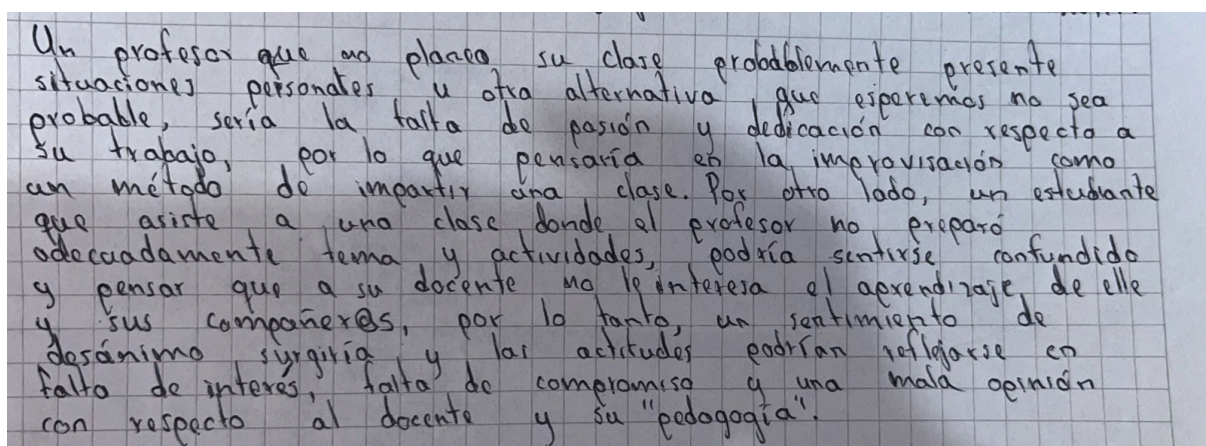 Un profesor que no planea su clase probablemente presente
situaciones personales u otra alternativa, que esperemos no sea
probable, sería la falta de pasión y dedicación con respecto a
su trabajo, por lo que pensaría en la improvisación como
un método de impartir una clase. Por otro lado, un estudiante
que asiste a una clase donde el profesor no preparó
adecuadamente tema y actividades, podría sentirse confundido
y pensar que a su docente no le interesa el aprendizaje de elle
y sus compañer@s, por lo tanto, un sentimiento de
desánimo surgiría y las actitudes podrían reflejarse en
falta de interés, falta de compromiso y una mala opinión
con respecto al docente y su "pedogogía".